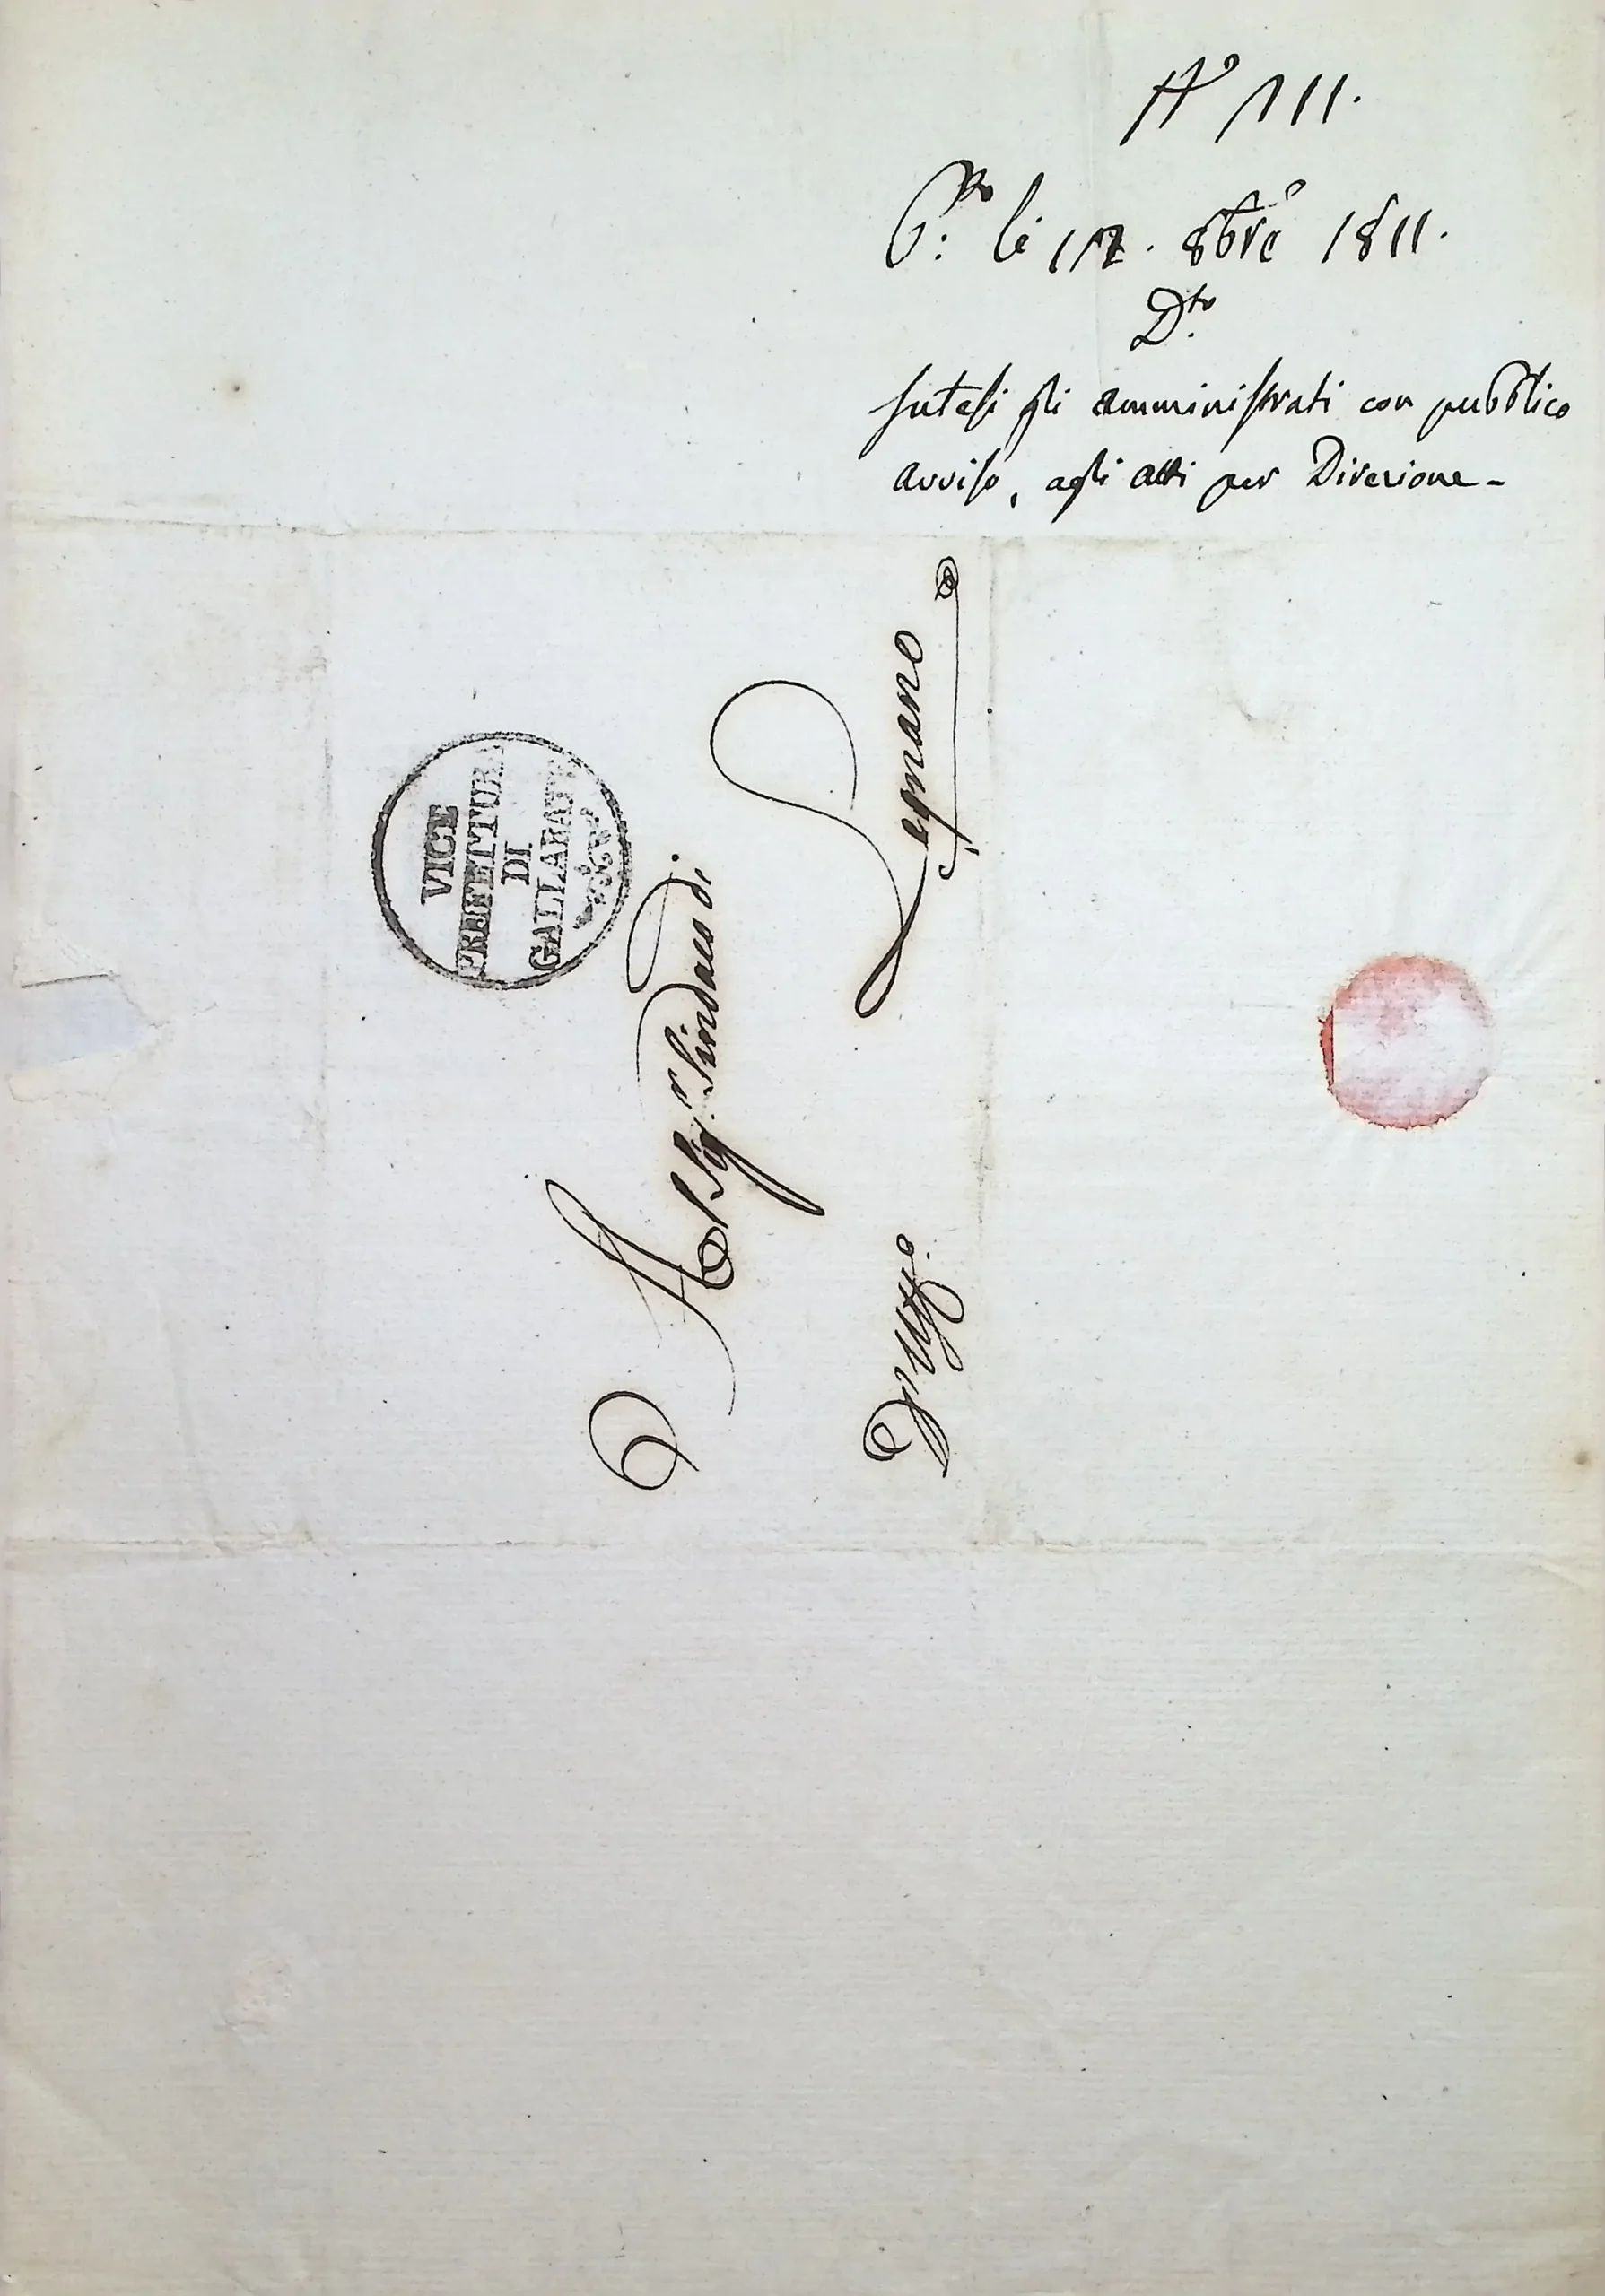 N° 111.
P.to li 17. 8bre 1811.
D.to
Intesi gli amministrati con pubblico
avviso, agli atti per Direzione -
VICE
PREFETTURA
DI
GALLARATE
Al Sig.r Sindaco di
Legnano